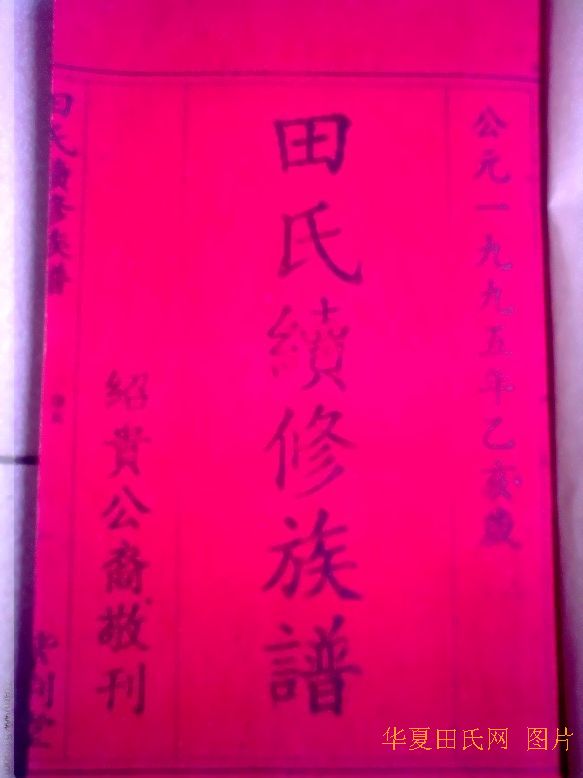 公元一九九五年乙亥歲
田氏續修族譜
紹貴公裔敬刊
田氏續修族譜
华夏田氏网 图片